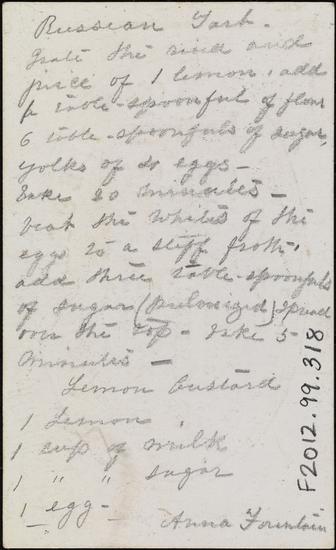 Russian Tart.
Grate the rind and
juice of 1 lemon, add
table-spoonful of flour
6 table-spoonfuls of sugar,
yolks of eggs -
Bake 20 minutes -
beat the whites of the
eggs to a stiff froth,
add three table-spoonfuls
of sugar (Pulverized) spread
over the top - Bake 5
minutes -
Lemon Custard
1 Lemon
1 cup of milk
1 " " sugar
1 egg -
Anna Fountain
F2012.99.318